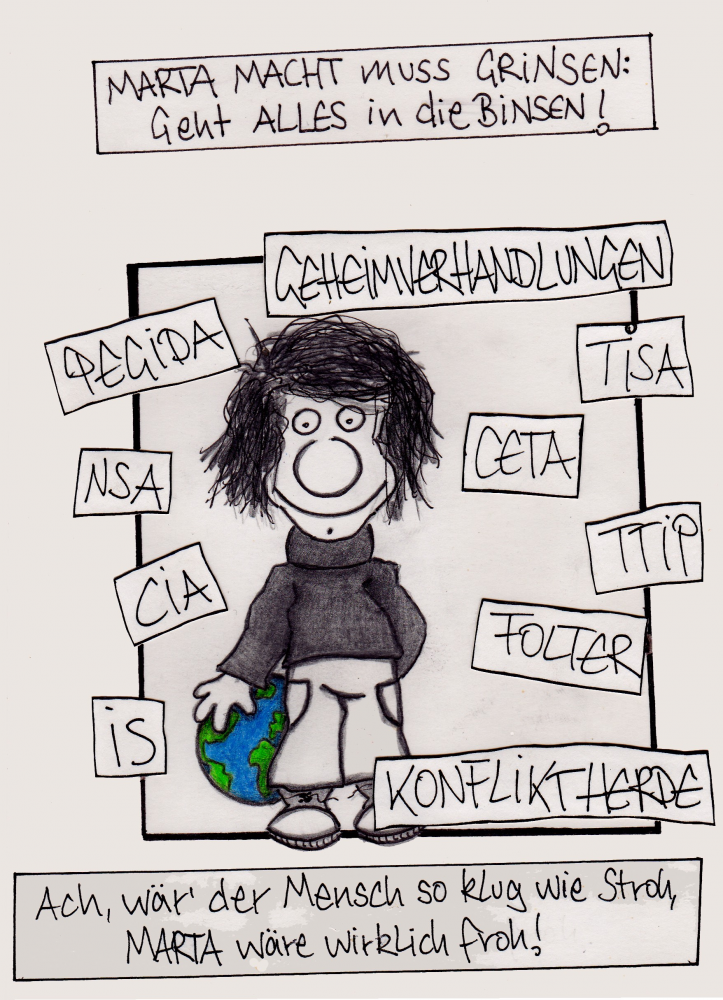 MARTA MACHT muss GRiNSEN:
Geht ALLES in die BiNSEN!
GEHEIMVERHANDLUNGEN
PEGiDA
TiSA
CETA
NSA
TTiP
CiA
FOLTER
iS
KONFLiKTHERDE
Ach, wär' der Mensch so klug wie Stroh,
MARTA wäre wirklich froh!